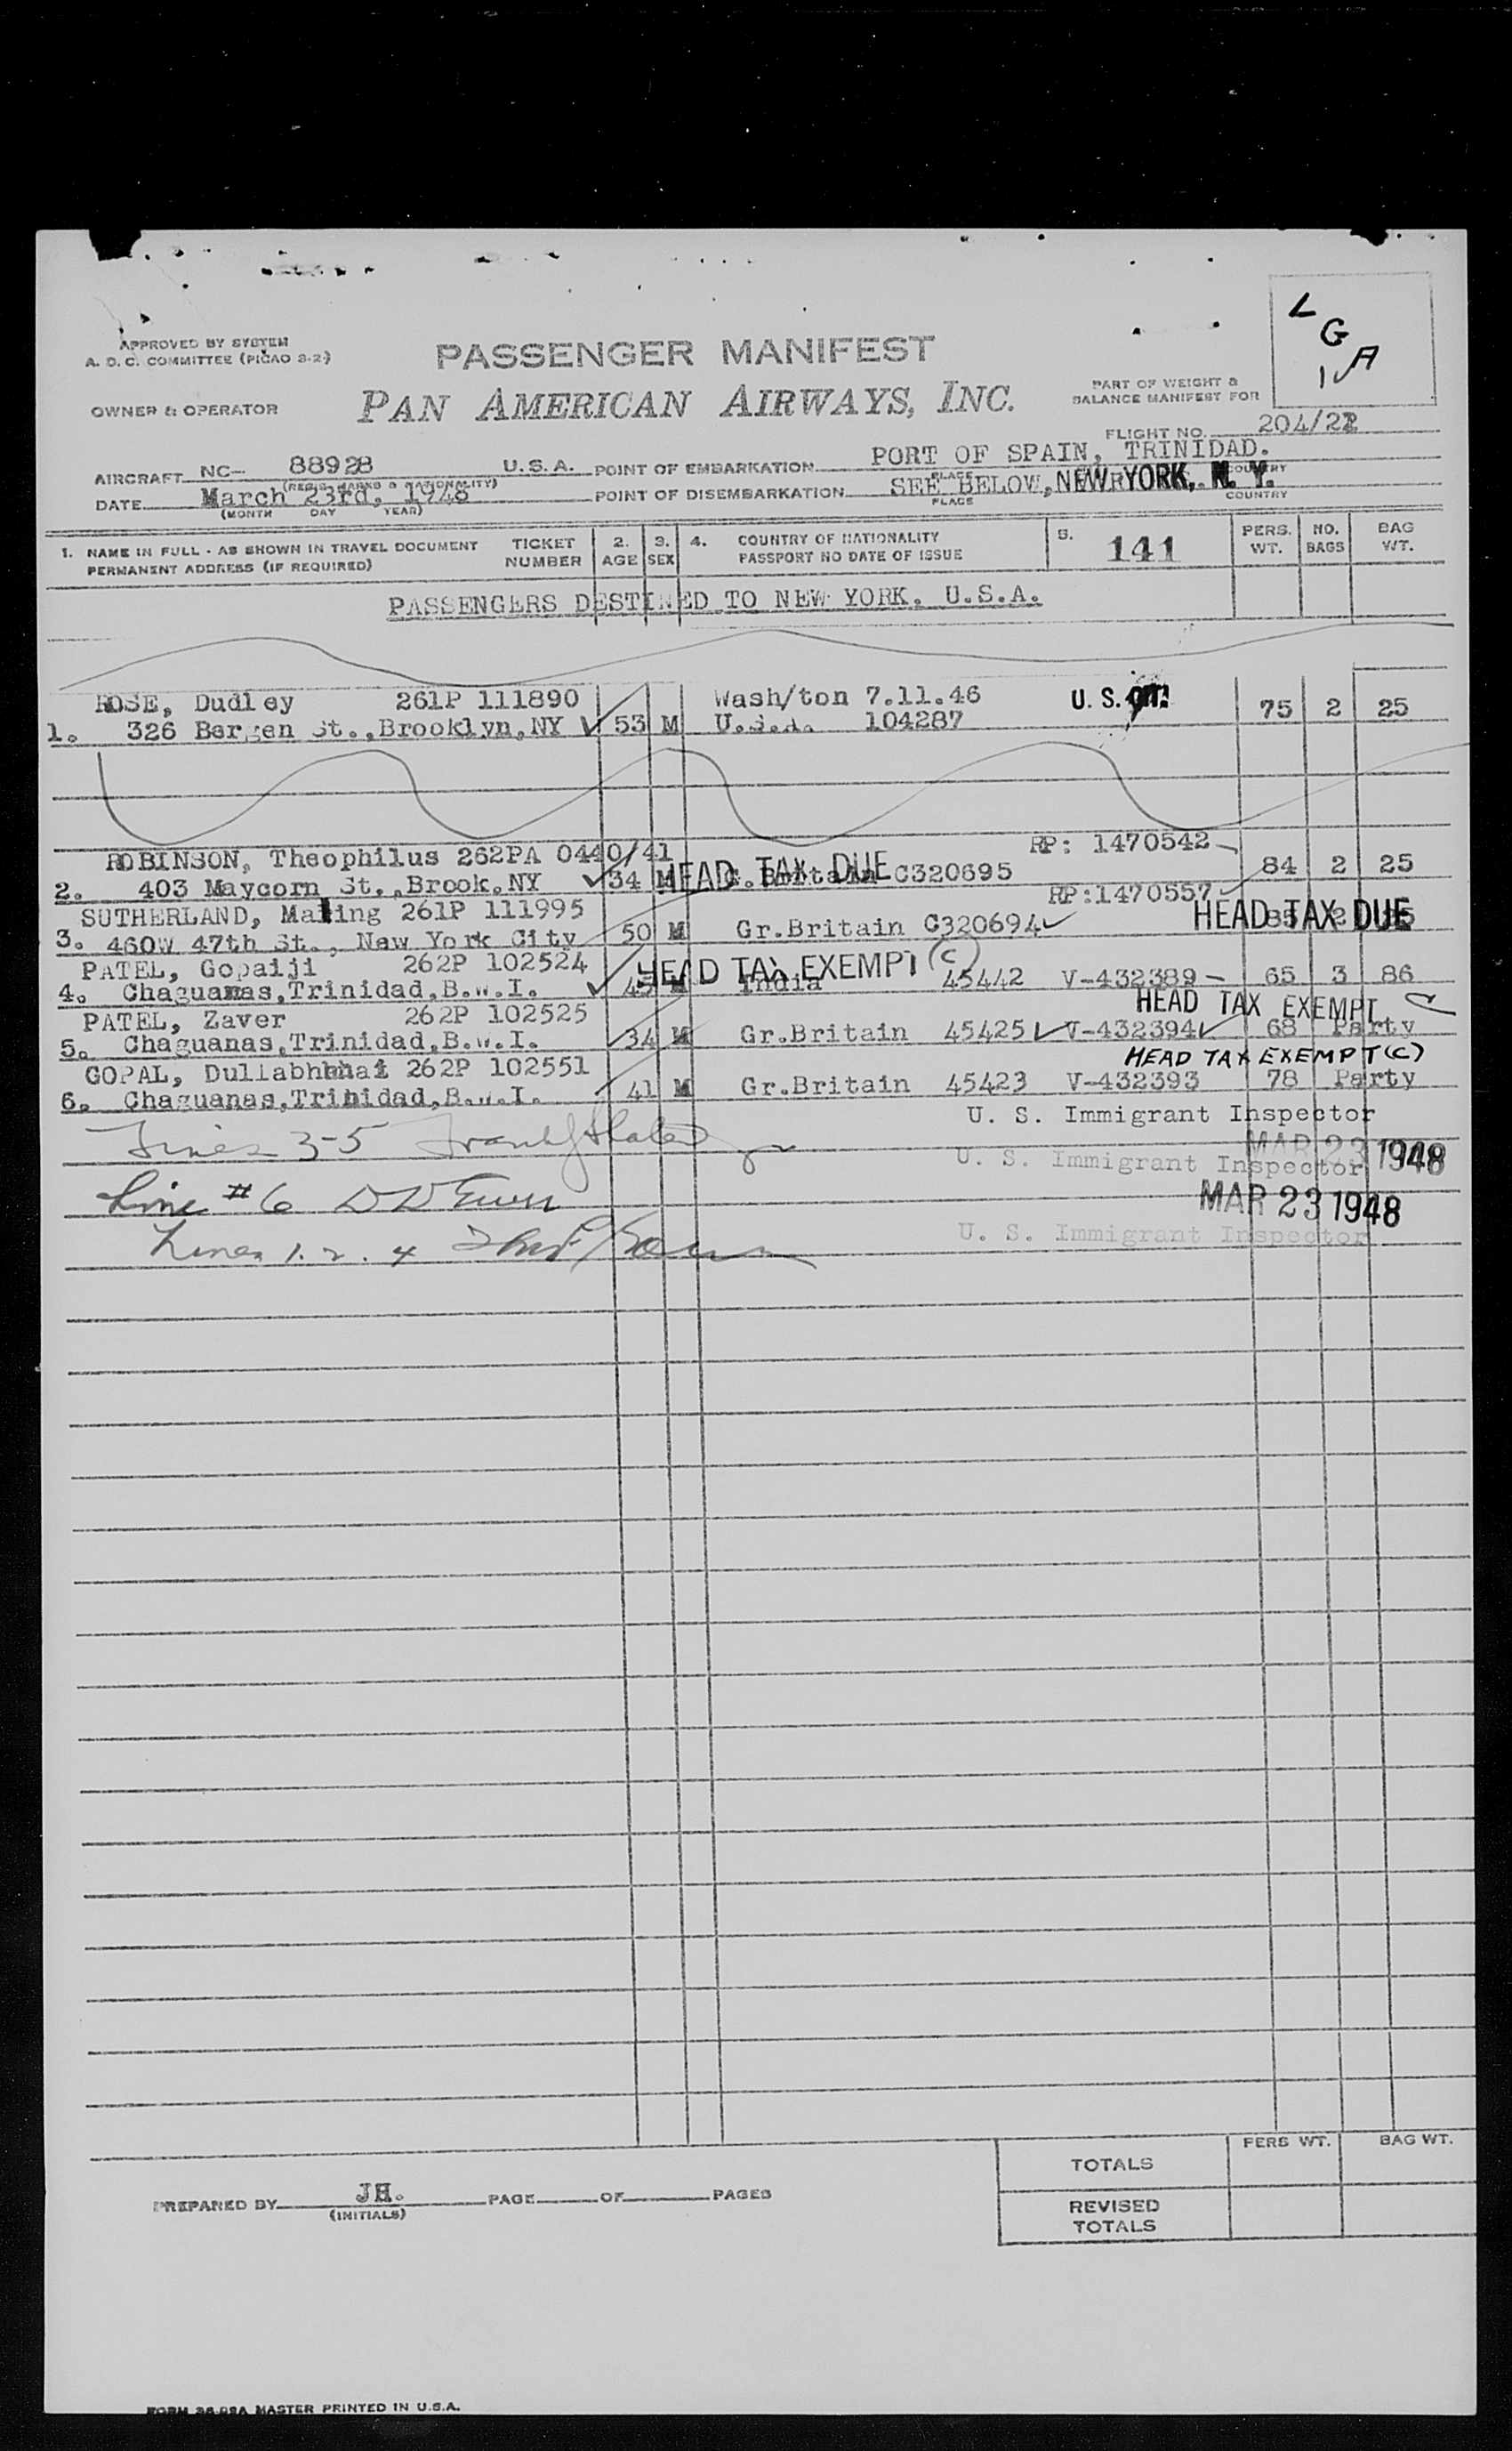 L
G
A
1
APPROVED BY SYSTEM
A. O. C. COMMITTEE (PICAO 8-2)
PASSENGER MANIFEST
OWNER & OPERATOR
PAN AMERICAN AIRWAYS, INC.
PART OF WEIGHT &
BALANCE MANIFEST FOR
FLIGHT NO. 204/22
AIRCRAFT NC- 88928 U.S.A. POINT OF EMBARKATION PORT OF SPAIN, TRINIDAD.
(REGIS. MARKS & NATIONALITY) PLACE COUNTRY
DATE March 23rd, 1948 POINT OF DISEMBARKATION SEE BELOW, NEW YORK, N. Y.
(MONTH DAY YEAR) PLACE COUNTRY
1. NAME IN FULL - AS SHOWN IN TRAVEL DOCUMENT TICKET 2. 3. 4. COUNTRY OF NATIONALITY 5. 141 PERS. NO. BAG
PERMANENT ADDRESS (IF REQUIRED) NUMBER AGE SEX PASSPORT NO DATE OF ISSUE WT. BAGS WT.
PASSENGERS DESTINED TO NEW YORK. U.S.A.
ROSE, Dudley 261P 111890 Wash/ton 7.11.46 U. S. CIT.
1. 326 Bergen St.,Brooklyn,NY 53 M U.S.A. 104287 75 2 25
ROBINSON, Theophilus 262PA 0440/41 HEAD TAX DUE RP: 1470542
2. 403 Maycorn St.,Brook.NY 34 M G.Britain C320695 84 2 25
SUTHERLAND, Maling 261P 111995 RP:1470557 HEAD TAX DUE
3. 460W 47th St., New York City 50 M Gr.Britain C320694 85 2 25
PATEL, Gopaiji 262P 102524 HEAD TAX EXEMPT (C)
4. Chaguanas,Trinidad,B.W.I. M India 45442 V-432389 65 3 86
PATEL, Zaver 262P 102525 HEAD TAX EXEMPT C
5. Chaguanas,Trinidad,B.W.I. 34 M Gr.Britain 45425 V-432394 68 Party
GOPAL, Dullabhbhai 262P 102551 HEAD TAX EXEMPT (C)
6. Chaguanas,Trinidad,B.W.I. 41 M Gr.Britain 45423 V-432393 78 Party
U. S. Immigrant Inspector
Lines 3-5
MAR 23 1948
U. S. Immigrant Inspector
Line #6
MAR 23 1948
Lines 1. 2. 4
U. S. Immigrant Inspector
PERS WT. BAG WT.
TOTALS
PREPARED BY JH. PAGE OF PAGES
(INITIALS)
REVISED
TOTALS
MASTER PRINTED IN U.S.A.